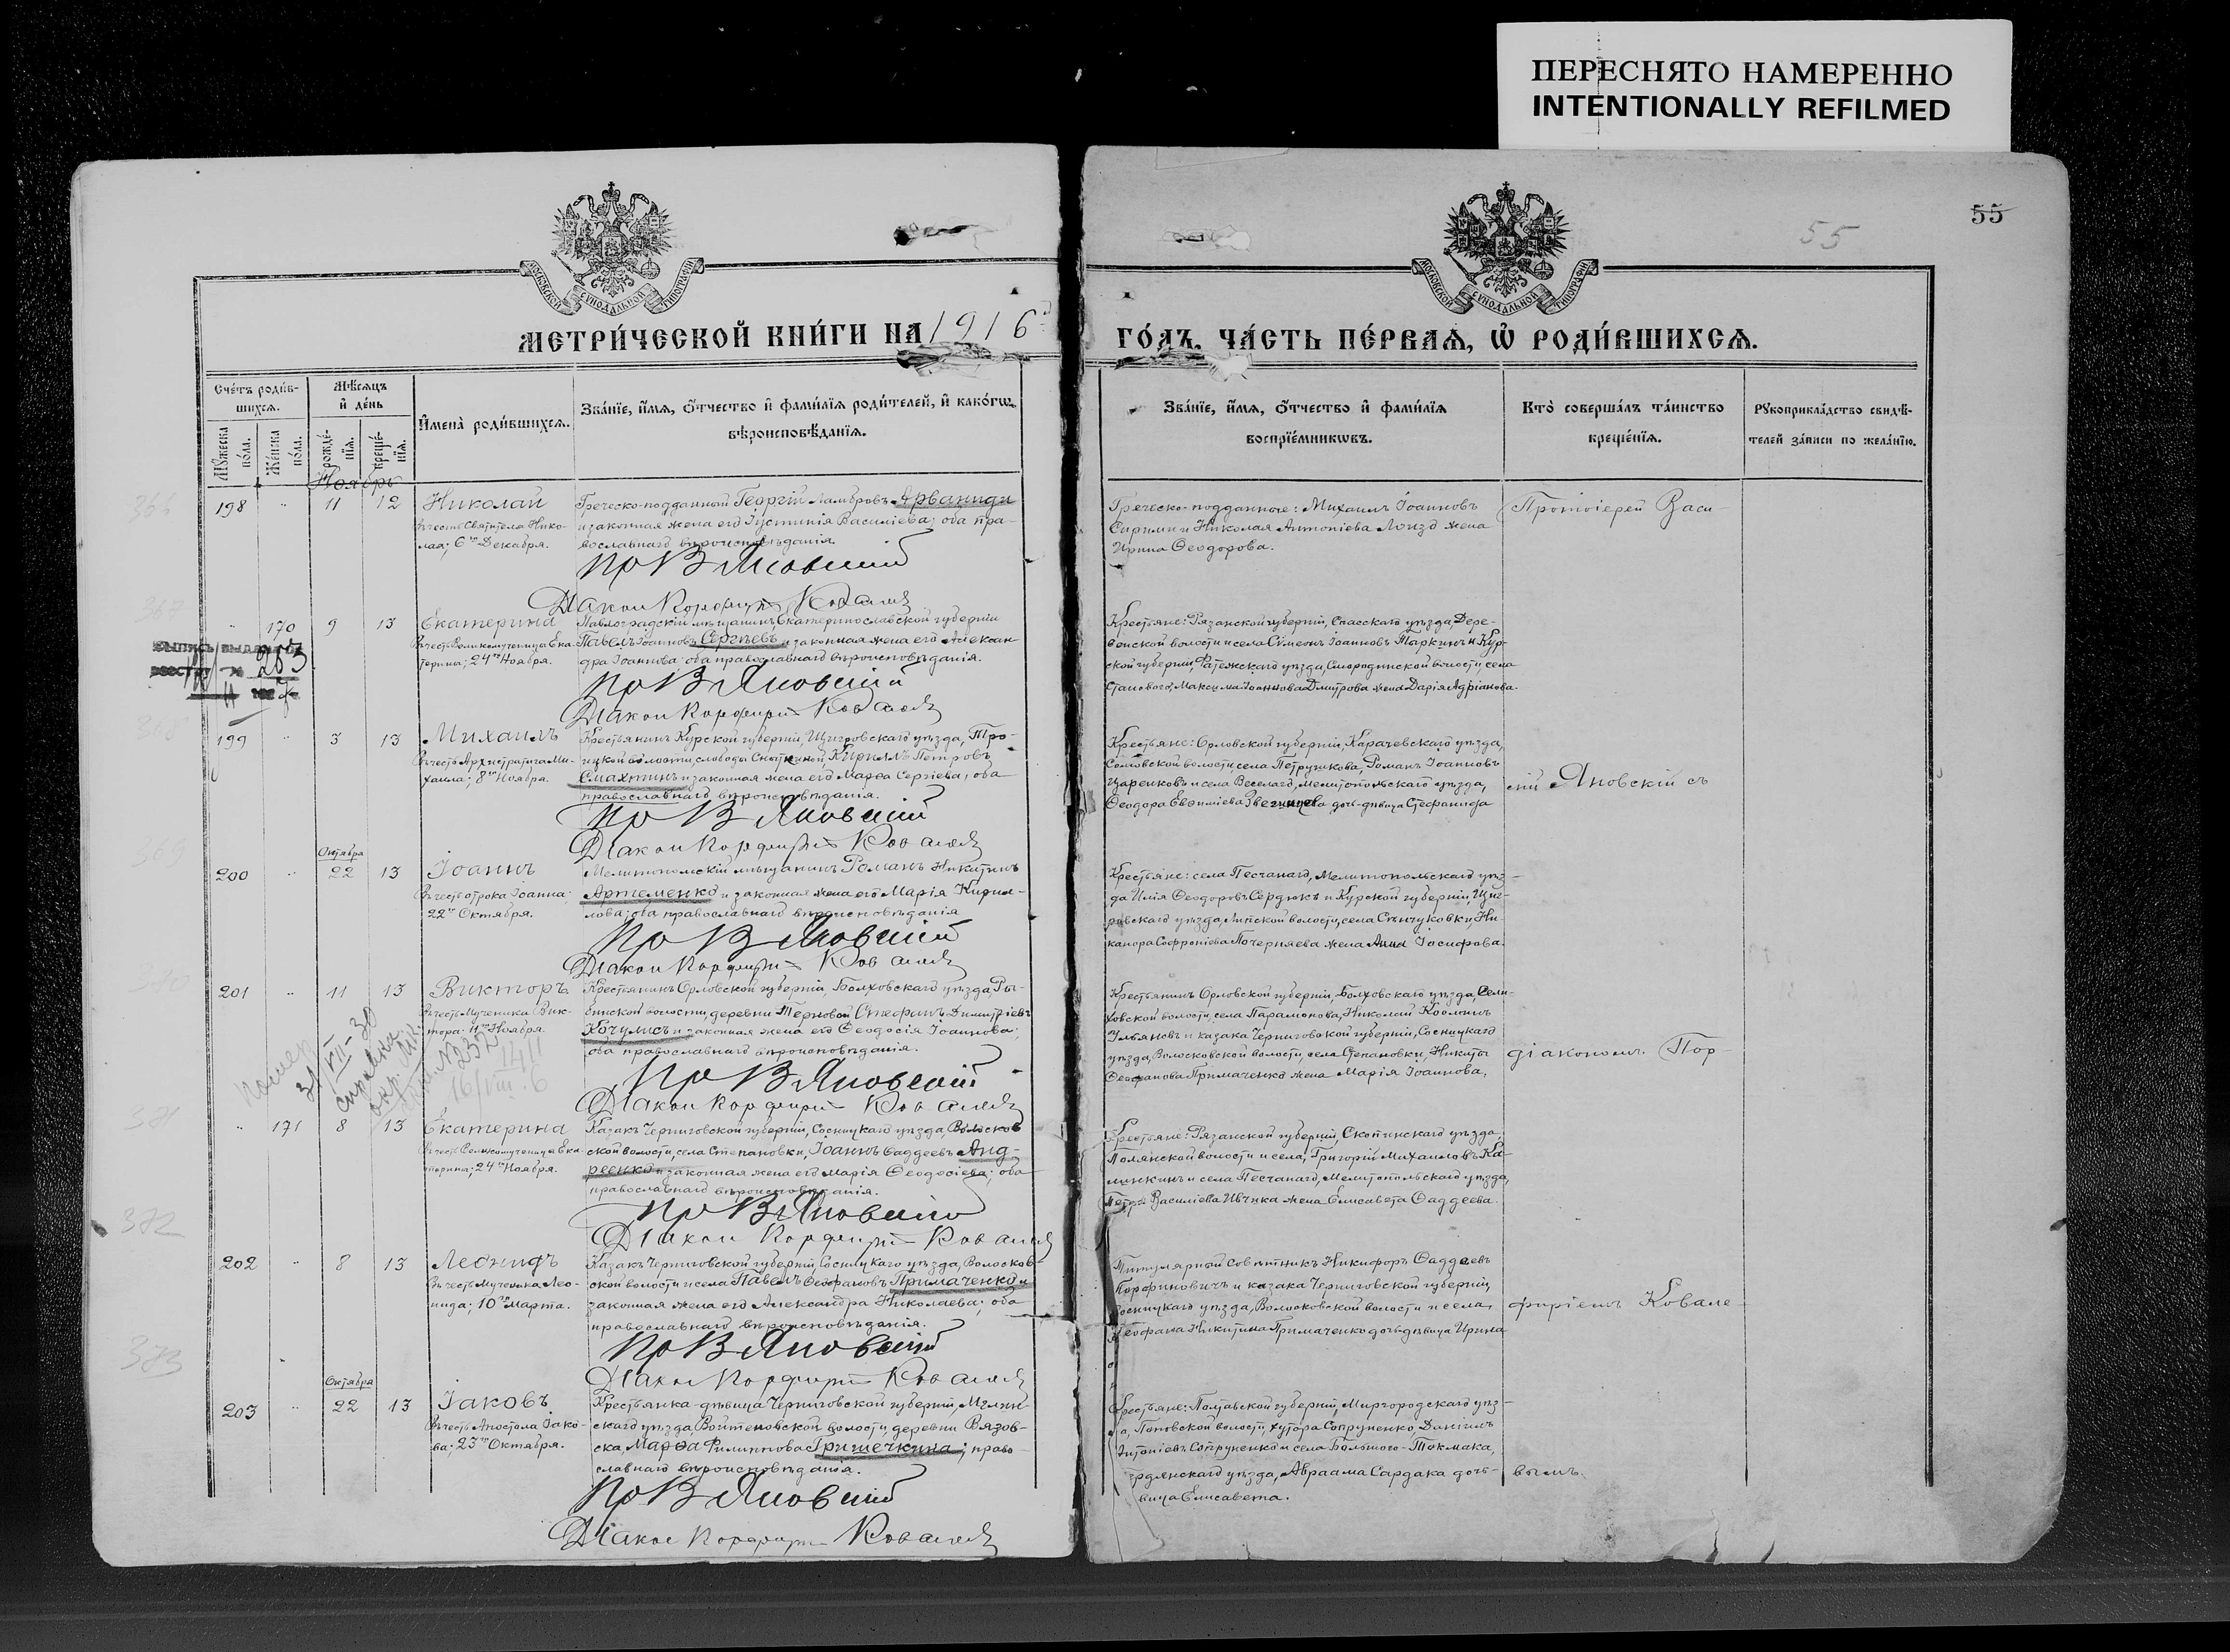 ПЕРЕСНЯТО НАМЕРЕННО
INTENTIONALLY REFILMED
55
55
МОСКОВСКОЙ СУНОДАЛЬНОЙ ТИПОГРАФІИ
МОСКОВСКОЙ СУНОДАЛЬНОЙ ТИПОГРАФІИ
МЕТРИ́ЧЕСКОЙ КНИ́ГИ НА 1916
ГО́ДЪ, ЧА́СТЬ ПЕ́РВАѦ, Ѡ РОДИ́ВШИХСѦ.
Сче́тъ роди́в-
шихсѧ.
Мѣ́сѧцъ
и҆ де́нь
Мꙋ́жеска
по́ла.
Же́нска
по́ла.
рожде́-
нїѧ.
креще́-
нїѧ.
И҆мена̀ роди́вшихсѧ.
Зва́нїе, и҆́мѧ, ѻ҆́тчество и҆ фами́лїѧ роди́телей, и҆ како́гѡ
вѣроисповѣ́данїѧ.
Зва́нїе, и҆́мѧ, ѻ҆́тчество и҆ фами́лїѧ
воспрїе́мникѡвъ.
Кто̀ соверша́лъ та́инство
креще́нїѧ.
Рꙋкоприкла́дство свидѣ́-
телей за́писи по жела́нїю.
Ноябрь
366
198 " 11 12 Николай
Въ честь Святителя Нико-
лая; 6го Декабря.
Греческо-подданный Георгій Ламбровъ Арваниди
и законная жена его Іустинія Василіева; оба пра-
вославнаго вѣроисповѣданія.
Пр В Яновскій
Діакон Порфирій Ковалевъ
Греческо-подданные: Михаилъ Іоанновъ
Сирими и Николая Антоніева Лоизо жена
Ирина Ѳеодорова.
Протоіерей Васи-
367
" 170 9 13 Екатерина
Въ честь Великомученицы Ека-
терины; 24го Ноября.
Павлоградскій мѣщанинъ, Екатеринославской губерніи
Павелъ Іоанновъ Сергѣевъ и законная жена его Алексан-
дра Іоаннова; оба православнаго вѣроисповѣданія.
Пр В Яновскій
Діакон Порфирій Ковалевъ
Крестьяне: Рязанской губерніи, Спасскаго уѣзда, Дере-
венской волости и села Сѵмеонъ Іоанновъ Таркинъ и Кур-
ской губерніи, Фатежскаго уѣзда, Смородинской волости, села
Становаго, Максима Іоаннова Дмитрова жена Дарія Адріанова.
263
368
199 " 3 13 Михаилъ
Въ честь Архистратига Ми-
хаила; 8го Ноября.
Крестьянинъ Курской губерніи, Щигровскаго уѣзда, Тро-
ицкой волости, слободы Сныткиной, Кириллъ Петровъ
Смахтинъ и законная жена его Марѳа Сергіева; оба
православнаго вѣроисповѣданія.
Пр В Яновскій
Діакон Порфирій Ковалевъ
Крестьяне: Орловской губерніи, Карачевскаго уѣзда,
волости, села Петрушкова, Романъ Іоанновъ
Царенковъ и села Веселаго, Мелитопольскаго уѣзда,
Ѳеодора Евѳиміева Звегинцева дочь-дѣвица Стефанида
лій Яновскій съ
369
Октября
200 " 22 13 Іоаннъ
Въ честь отрока Іоанна;
22го Октября.
Мелитопольскій мѣщанинъ Романъ Никитинъ
Артеменко и законная жена его Марія Кирил-
лова; оба православнаго вѣроисповѣданія
Пр В Яновскій
Діакон Порфирій Ковалевъ
Крестьяне: села Песчанаго, Мелитопольскаго уѣз-
да Илія Ѳеодоровъ Сердюкъ и Курской губерніи, Щиг-
ровскаго уѣзда, Липской волости, села Сѣнчуковки, Ни-
канора Софроніева Почерняева жена Анна Іосифова.
370
201 " 11 13 Викторъ
Въ честь Мученика Вик-
тора; 11го Ноября.
Крестьянинъ Орловской губерніи, Болховскаго уѣзда, Ры-
бинской волости, деревни Терновой Стефанъ Димитріевъ
Кочулисъ и законная жена его Ѳеодосія Іоаннова;
оба православнаго вѣроисповѣданія.
Пр В Яновскій
Діакон Порфирій Ковалевъ
Крестьянинъ Орловской губерніи, Болховскаго уѣзда, Сели-
ховской волости, села Парамонова, Николай Козьминъ
Ульяновъ и казака Черниговской губерніи, Сосницкаго
уѣзда, Волосковской волости, села Степановки, Никиты
Ѳеофанова Примаченко жена Марія Іоаннова.
діакономъ Пор-
371
" 171 8 13 Екатерина
Въ честь Великомученицы Ека-
терины; 24го Ноября.
Казакъ Черниговской губерніи, Сосницкаго уѣзда, Волосков-
ской волости, села Степановки, Іоаннъ Ѳаддеевъ Анд-
реенко и законная жена его Марія Ѳеодосіева; оба
православнаго вѣроисповѣданія.
Пр В Яновскій
Діакон Порфирій Ковалевъ
Крестьяне: Рязанской губерніи, Скопинскаго уѣзда,
Полянской волости и села, Григорій Михаиловъ Ка-
линкинъ и села Песчанаго, Мелитопольскаго уѣзда,
Петра Василіева Ивчика жена Елисавета Ѳаддеева.
372
202 " 8 13 Леонидъ
Въ честь Мученика Лео-
нида; 10го Марта.
Казакъ Черниговской губерніи, Сосницкаго уѣзда, Волосков-
ской волости и села Павелъ Ѳеофановъ Примаченко и
законная жена его Александра Николаева; оба
православнаго вѣроисповѣданія.
Пр В Яновскій
Діакон Порфирій Ковалевъ
Титулярный Совѣтникъ Никифоръ Ѳаддеевъ
Порфиновичъ и казака Черниговской губерніи,
Сосницкаго уѣзда, Волосковской волости и села,
Ѳеофана Никитина Примаченко дочь-дѣвица Ирина
фиріемъ Ковале-
373
Октября
203 " 22 13 Іаковъ
Въ честь Апостола Іако-
ва; 23го Октября.
Крестьянка-дѣвица Черниговской губерніи, Мглин-
скаго уѣзда, Войтеновской волости, деревни Вязов-
ска, Марѳа Филиппова Гришечкина; право-
славнаго вѣроисповѣданія.
Пр В Яновскій
Діакон Порфирій Ковалевъ
Крестьяне: Полтавской губерніи, Миргородскаго уѣз-
а, Поповской волости, хутора Сопруненко, Даніилъ
Антоніевъ Сопруненко и села Большого-Токмака,
рдянскаго уѣзда, Авраама Сардака дочь-
вица Елисавета.
вымъ.